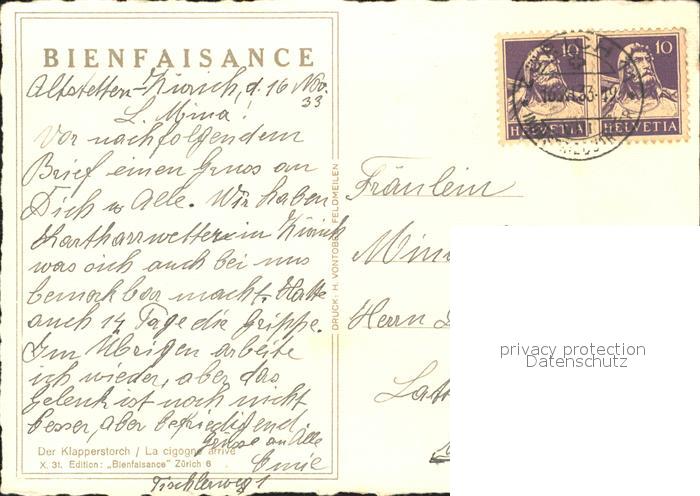 BIENFAISANCE
Altstetten-Zürich, d. 16 Nov.
33
L. Mina!
Vor nachfolgendem
Brief einen Gruss an
Dich u Alle. Wir haben
in Zürich
was sich auch bei uns
bemerkbar macht. Hatte
auch 14 Tage die Grippe.
Im Übrigen arbeite
ich wieder, aber das
Gelenk ist noch nicht
besser, aber befriedigend
Grüsse an Alle
Emie
Tischlerweg 1
Der Klapperstorch / La cigogne arrive
X. 31. Edition: „Bienfaisance" Zürich 6
DRUCK: H. VONTOBEL FELDMEILEN
10 10
HELVETIA HELVETIA
Fräulein
Min
Herrn
Latt
privacy protection
Datenschutz